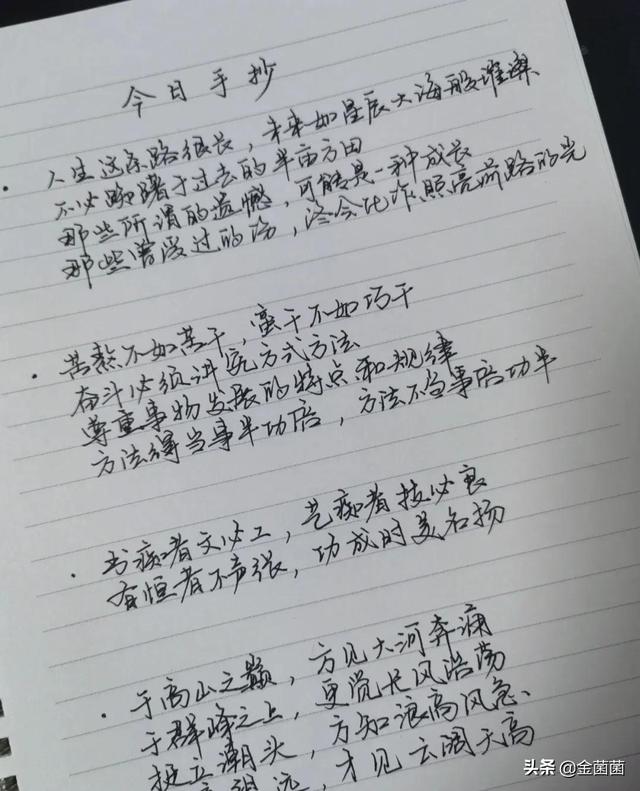 今日手抄
· 人生这条路很长，未来如星辰大海般璀璨
不必踟蹰于过去的半亩方田
那些所谓的遗憾，可能是一种成长
那些曾受过的伤，终会化作照亮前路的光
· 苦熬不如苦干，蛮干不如巧干
奋斗必须讲究方式方法
尊重事物发展的特点和规律
方法得当事半功倍，方法不当事倍功半
· 书痴者文必工，艺痴者技必良
有恒者不声张，功成时美名扬
· 于高山之巅，方见大河奔涌
于群峰之上，更觉长风浩荡
挺立潮头，方知浪高风急、
，才见云阔天高
头条 @金菌菌